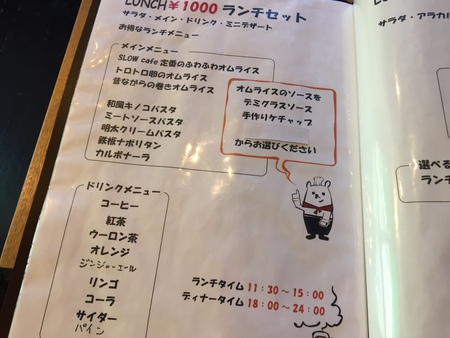 LUNCH¥1000 ランチセット
サラダ・メイン・ドリンク・ミニデザート
お得なランチメニュー
メインメニュー
SLOW cafe 定番のふわふわオムライス
トロトロ卵のオムライス
昔ながらの巻きオムライス
和風キノコパスタ
ミートソースパスタ
明太クリームパスタ
鉄板ナポリタン
カルボナーラ
オムライスのソースを
デミグラスソース
手作りケチャップ
からお選びください
ドリンクメニュー
コーヒー
紅茶
ウーロン茶
オレンジ
ジンジャーエール
リンゴ
コーラ
サイダー
パイン
ランチタイム 11:30~15:00
ディナータイム 18:00~24:00
サラダ・アラカル
選べる
ランチ